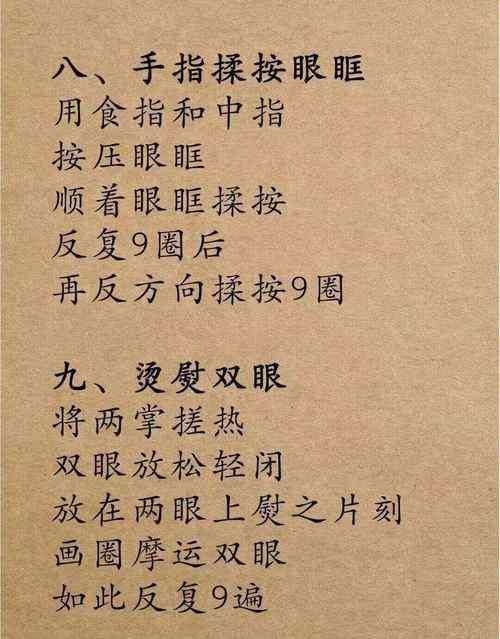 八、手指揉按眼眶
用食指和中指
按压眼眶
顺着眼眶揉按
反复9圈后
再反方向揉按9圈
九、烫熨双眼
将两掌搓热
双眼放松轻闭
放在两眼上熨之片刻
画圈摩运双眼
如此反复9遍